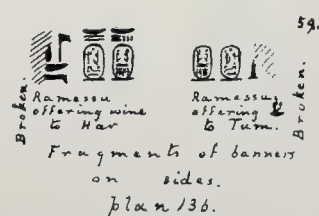 59.
Broken.
Ramessu
offering wine
to Har
Ramessu
offering
to Tum.
Broken.
Fragments of banners
on sides.
plan 136.